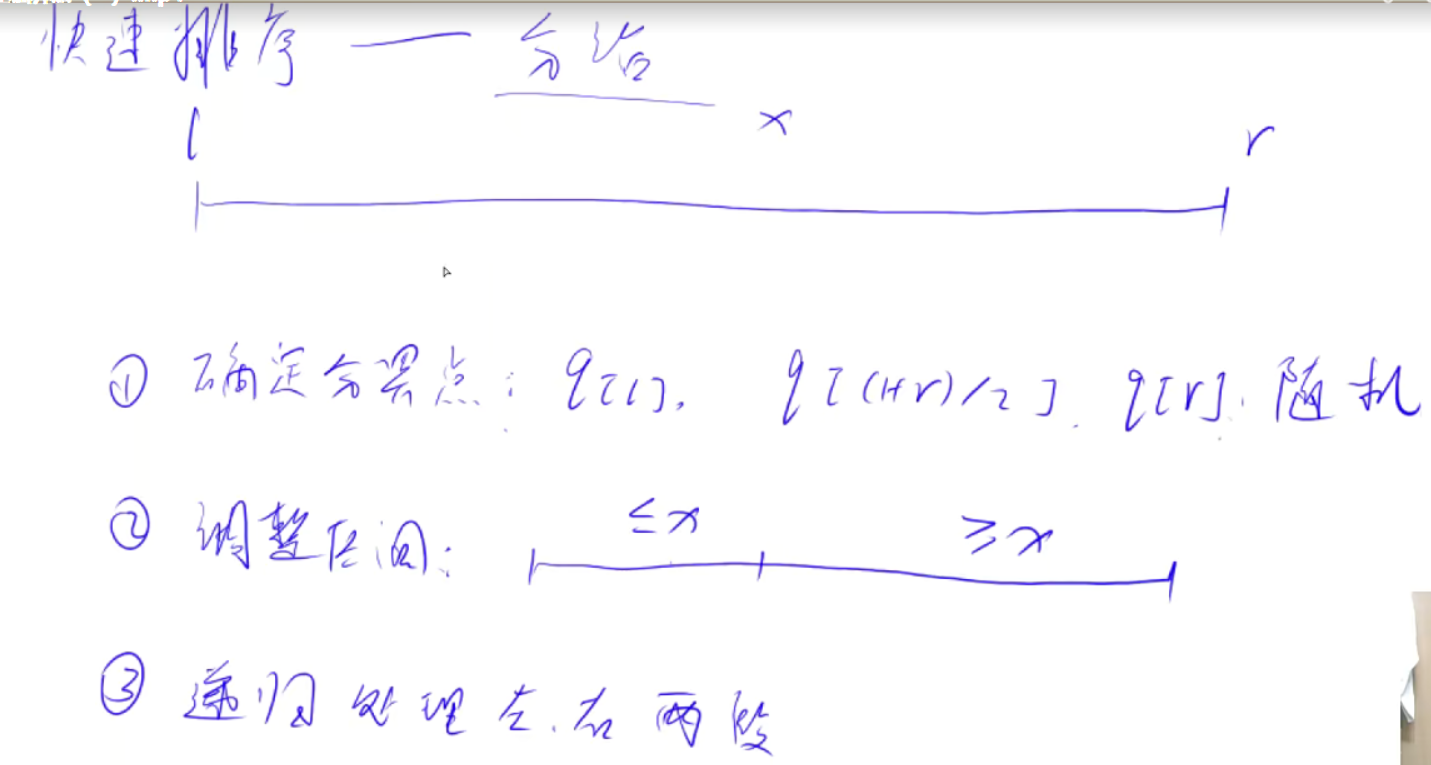 快速排序 — 分治
l x r
① 确定分界点: q[l], q[(l+r)/2], q[r], 随机
② 调整区间: ≤x ≥x
③ 递归处理左、右两段